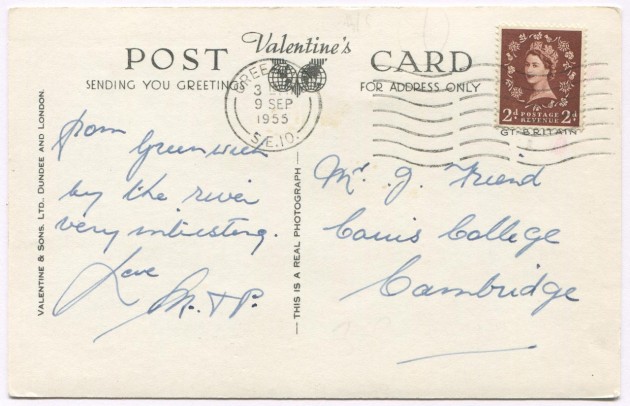 Valentine's
POST CARD
SENDING YOU GREETINGS
FOR ADDRESS ONLY
9 SEP
1955
S.E.10.
2d POSTAGE REVENUE 2d
GT. BRITAIN
VALENTINE & SONS, LTD., DUNDEE AND LONDON.
THIS IS A REAL PHOTOGRAPH
From Greenwich
by the river
very interesting.
Love
M. & P.
Mr J. Friend
Caius College
Cambridge